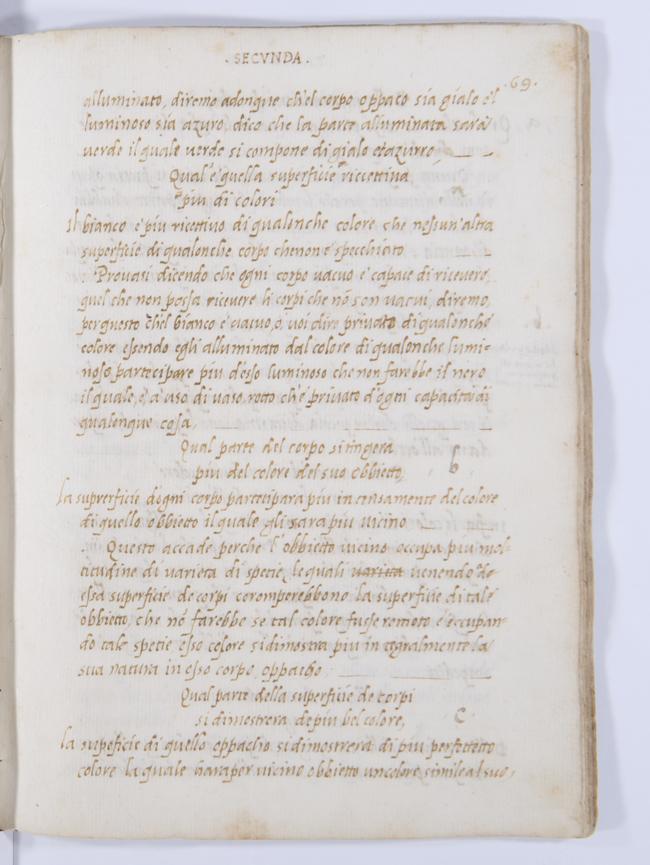 . SECVNDA .
.69.
alluminato, diremo adonque ch'el corpo oppaco sia gialo el
luminoso sia azuro, dico che la parte alluminata sara
uerde il quale uerde si compone di gialo et azurro,
Qual'e quella superficie ricettiua
piu di colori
Il bianco e piu ricettiuo di qualonche colore che nessun'altra
superficie di qualonche corpo che non e specchiato
: Prouasi dicendo che ogni corpo uacuo e capace di riceuere,
quel che non possa riceuere li corpi che nō son uacui, diremo,
per questo ch'el bianco e uacuo, o, uoi dire priuato di qualonche
colore essendo egli alluminato dal colore di qualonche lumi=
noso, partecipare piu d'esso luminoso che non farebbe il nero
il quale, e, a uso di uaso, rotto ch'e priuato d'ogni capacita di
qualonque cosa,
Qual parte del corpo si tingera
piu del colore del suo obbietto,
b
La suprerficie d'ogni corpo partecipara piu intensamente del colore
di quello obbietto il quale gli sara piu uicino
. Questo accade perche l'obbietto uicino occupa piu mol-
titudine di uarieta di spetie, le quali uarieta uenendo de
essa superficie de corpi coromperebbono la superficie di tale
obbietto, che nō farebbe se tal colore fusse remoto e occupan-
do tale spetie esso colore si dimostra piu integralmente la
sua natura in esso corpo, oppacho,
Qual parte della superficie de corpi
si dimostrera de piu bel colore,
C
La supeficie di quello oppacho si dimostrera di piu perfettetto
colore la quale hara per uicino obbietto un colore simile al suo,